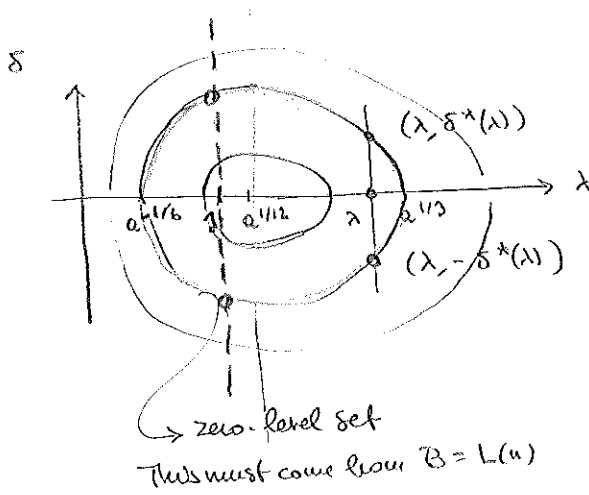 δ
(λ, δ*(λ))
a^{-1/6} 1 a^{1/12} λ a^{1/3} λ
(λ, -δ*(λ))
zero-level set
This must come from B = L(u)